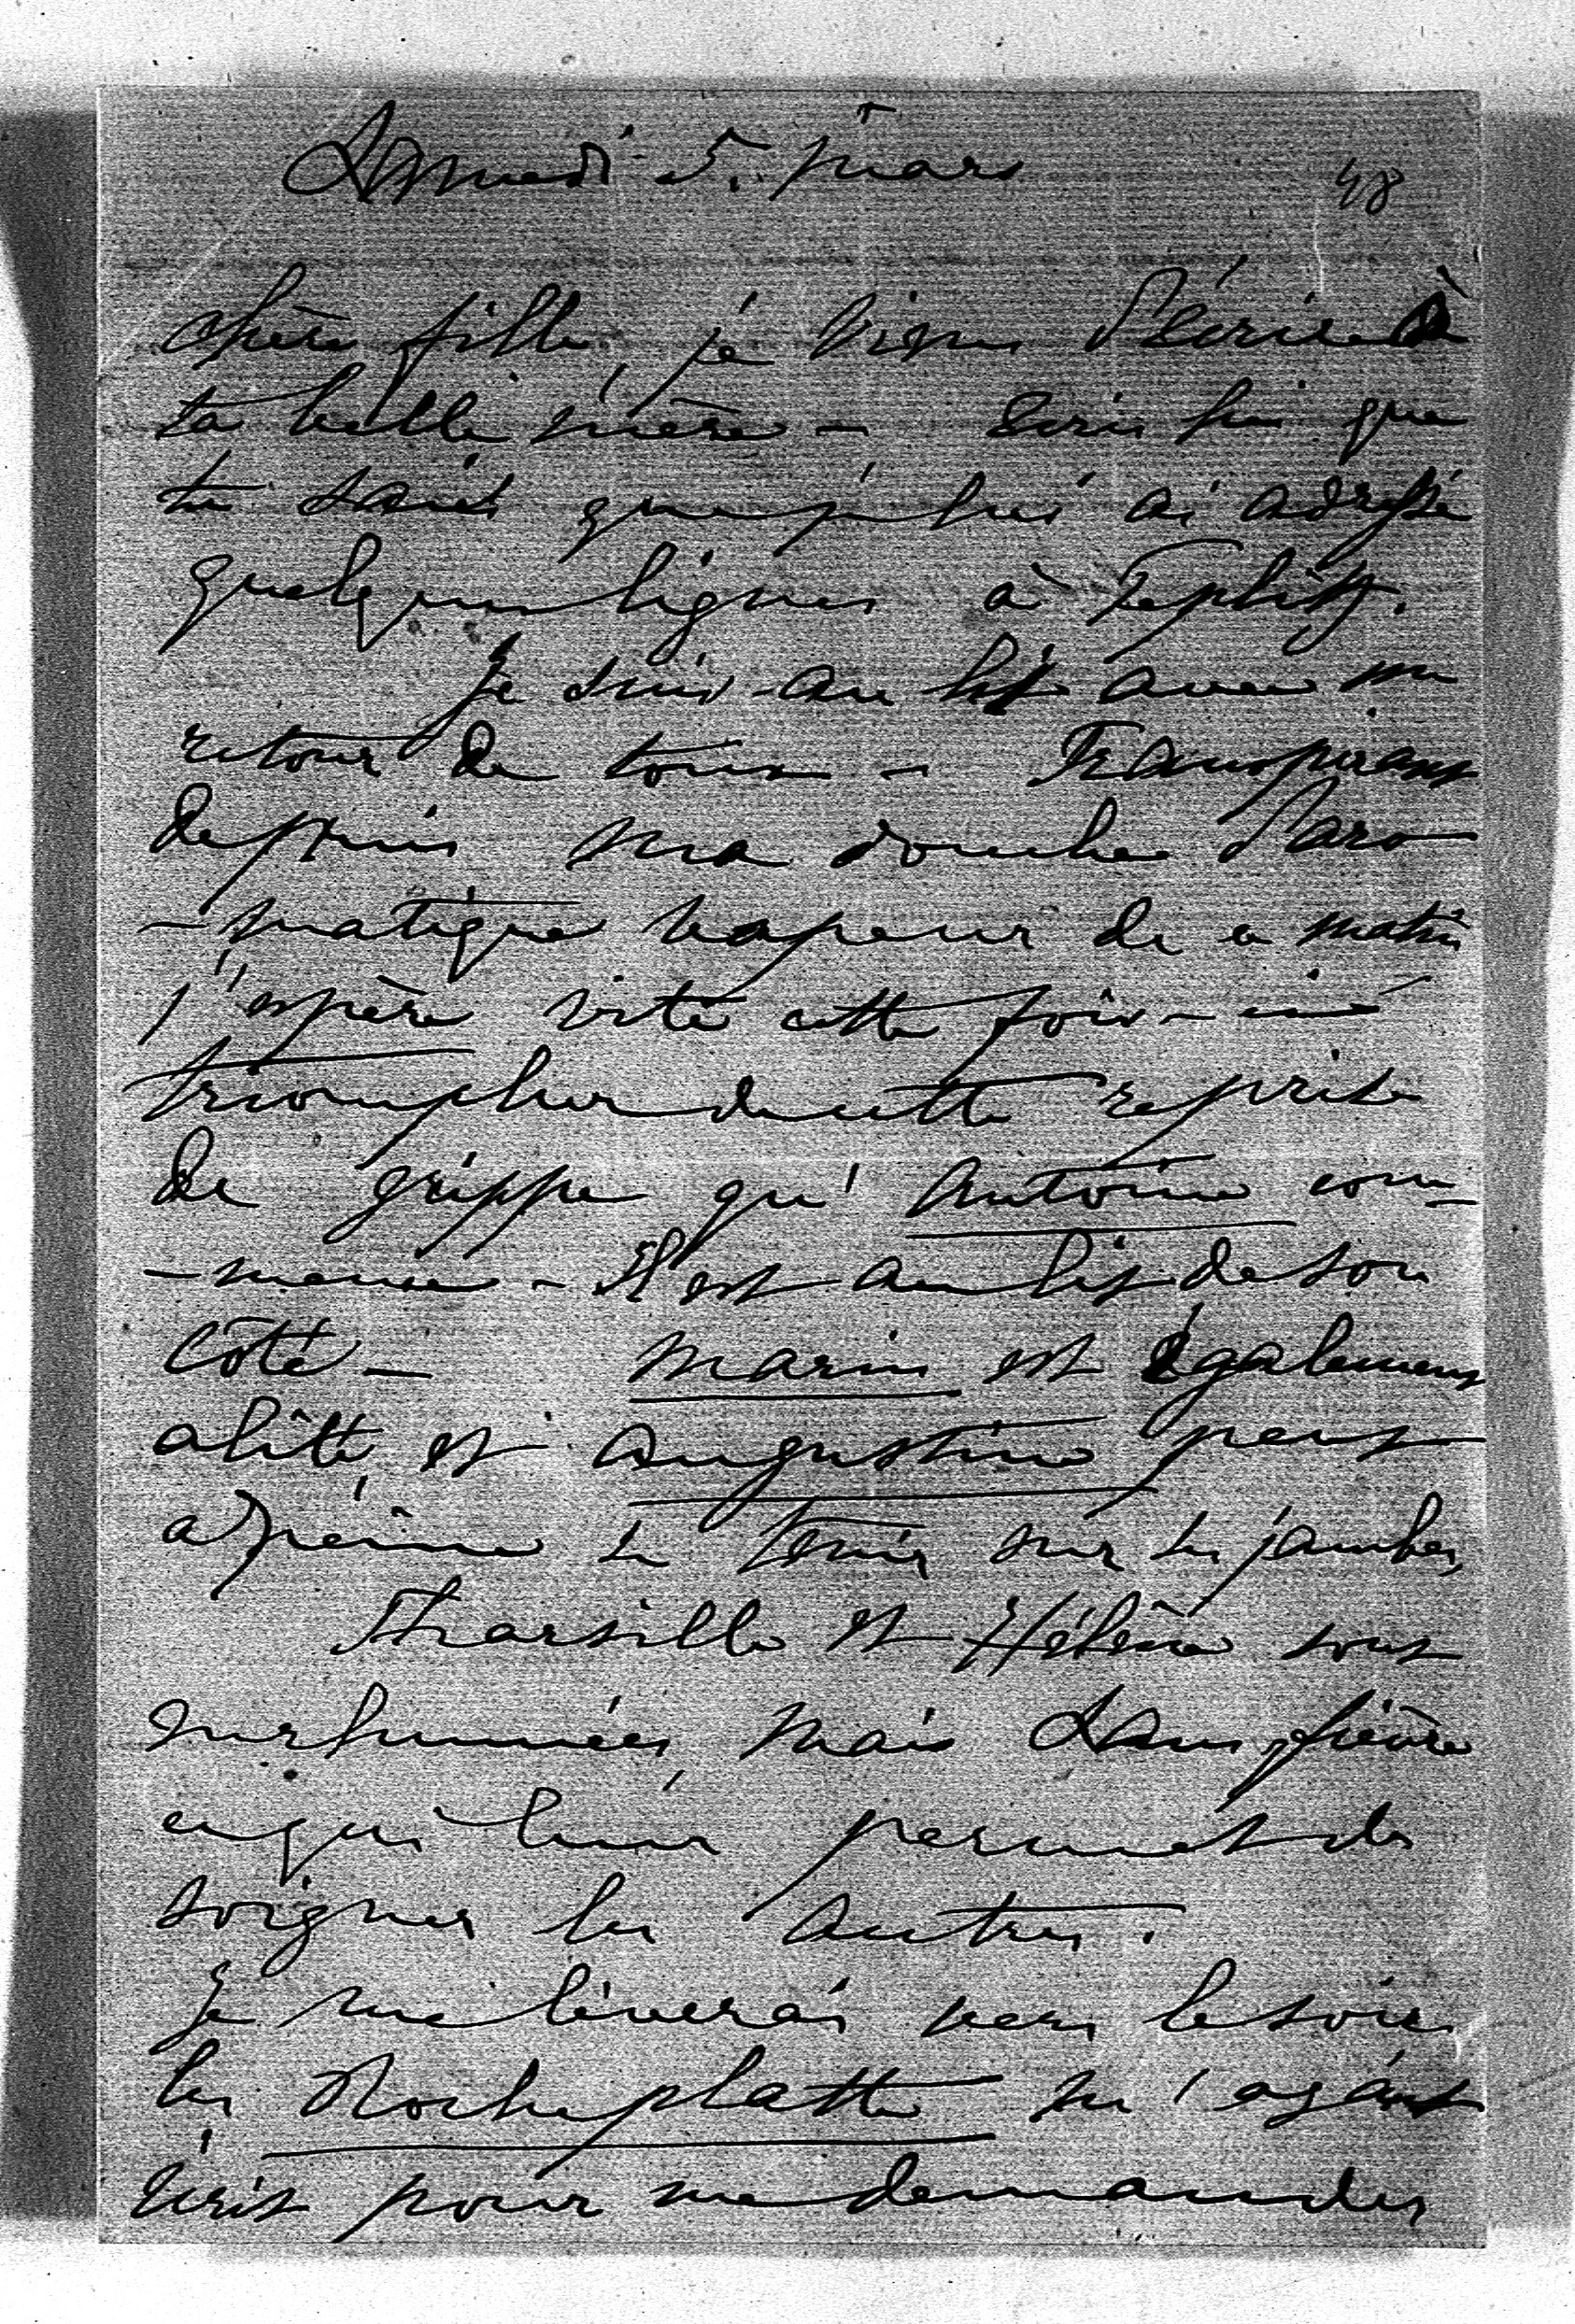 Samedi 5. mars
48
chère fille, je viens d'écrire à
ta belle mère - Écris lui que
tu sais que je lui ai adressé
quelques lignes à Teplitz.
Je suis au lit avec un
retour de toux - Transpirant
depuis ma douche d'aro
-matique vapeur de ce matin
j'espère vite cette fois-ci
triompher de cette reprise
de grippe qu'Antoine com-
-mence - Il est au lit de son
côté - Marin est également
alité, et Augustine peut
à peine se tenir sur ses jambes,
Tharsille et Hélène sont
enrhumées, mais sans fièvre
ce qui leur permet de
soigner les autres.
Je me lèverai vers le soir
les Rocheplatte m'ayant
écrit pour me demander